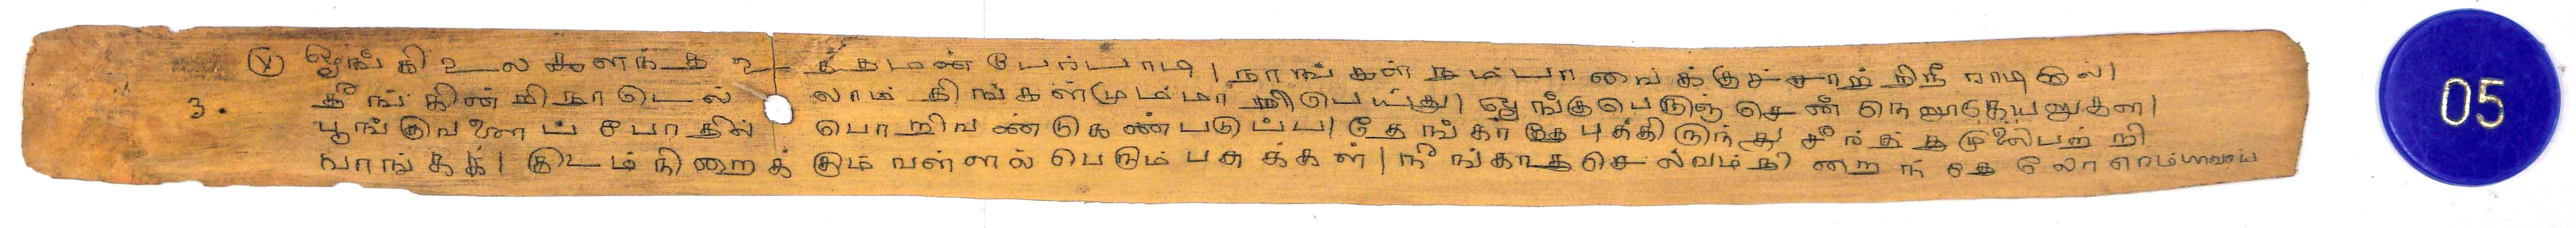 ஓங்கி உலகளந்த உத்தமன் பேர்பாடி | நாங்கள் நம்பாவைக்குச்சாற்றிநீ ராடினால் |
3. தீங்கின்றிநாடெல்லாம் திங்கள்மும்மாரிபெய்து | ஓங்குபெருஞ்செந்நெலூடுகயலுகள |
பூங்குவளைப்போதில் பொறிவண்டுகண்படுப்ப | தேங்காதேபுக்கிருந்து சீர்த்தமுலைபற்றி
வாங்கக் | குடம்நிறைக்கும்வள்ளல்பெரும்பசுக்கள் | நீங்காதசெல்வம்நிறைந்தேலோரெம்பாவாய்
05